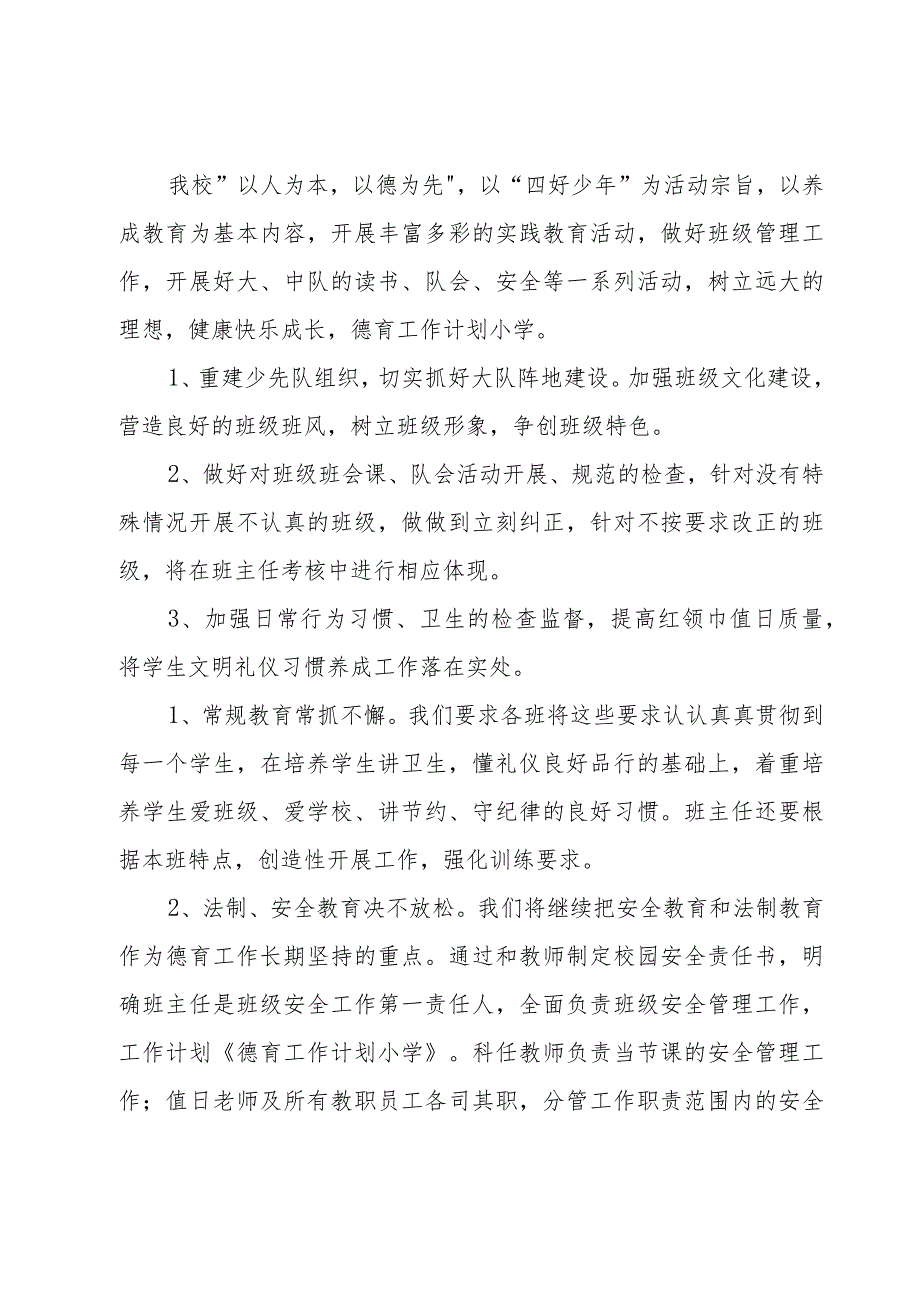 我校”以人为本，以德为先"，以“四好少年”为活动宗旨，以养
成教育为基本内容，开展丰富多彩的实践教育活动，做好班级管理工
作，开展好大、中队的读书、队会、安全等一系列活动，树立远大的
理想，健康快乐成长，德育工作计划小学。
1、重建少先队组织，切实抓好大队阵地建设。加强班级文化建设，
营造良好的班级班风，树立班级形象，争创班级特色。
2、做好对班级班会课、队会活动开展、规范的检查，针对没有特
殊情况开展不认真的班级，做做到立刻纠正，针对不按要求改正的班
级，将在班主任考核中进行相应体现。
3、加强日常行为习惯、卫生的检查监督，提高红领巾值日质量，
将学生文明礼仪习惯养成工作落在实处。
1、常规教育常抓不懈。我们要求各班将这些要求认认真真贯彻到
每一个学生，在培养学生讲卫生，懂礼仪良好品行的基础上，着重培
养学生爱班级、爱学校、讲节约、守纪律的良好习惯。班主任还要根
据本班特点，创造性开展工作，强化训练要求。
2、法制、安全教育决不放松。我们将继续把安全教育和法制教育
作为德育工作长期坚持的重点。通过和教师制定校园安全责任书，明
确班主任是班级安全工作第一责任人，全面负责班级安全管理工作，
工作计划《德育工作计划小学》。科任教师负责当节课的安全管理工
作；值日老师及所有教职员工各司其职，分管工作职责范围内的安全